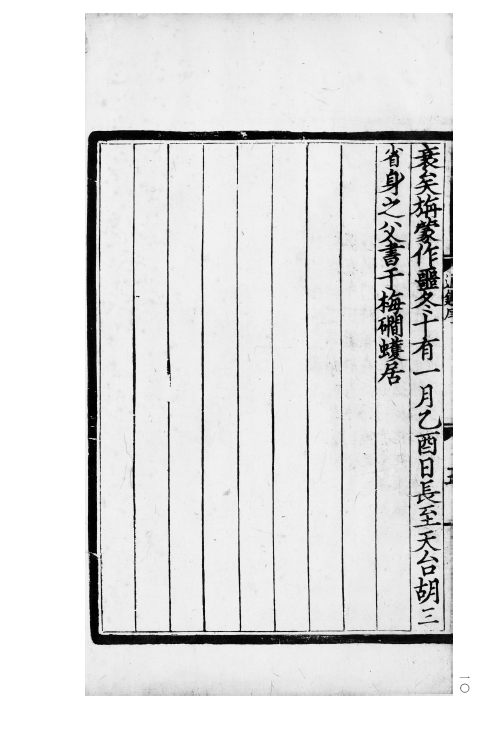 衰矣旃蒙作噩冬十有一月乙酉日長至天台胡三
省身之父書于梅磵蠖居
通鑑序
五
一〇